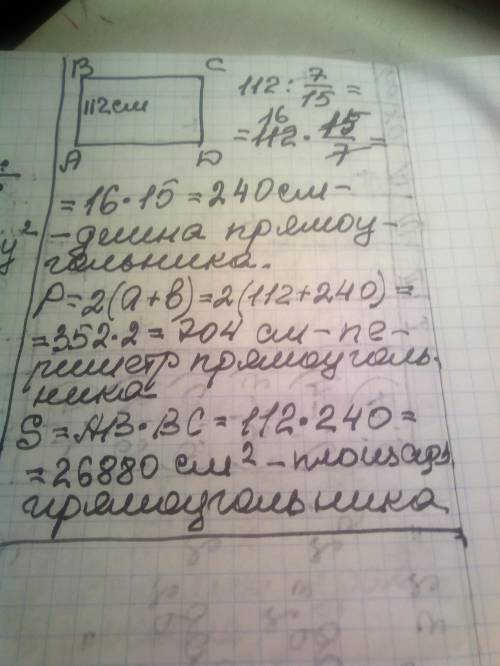 B C
112см
A D
112 : 7/15 =
= 112 · 15/7 =
16
= 16 · 15 = 240 см -
- длина прямоу-
гольника.
P = 2(a + b) = 2(112 + 240) =
= 352 · 2 = 704 см - пе-
риметр прямоуголь-
ника
S = AB · BC = 112 · 240 =
= 26880 см² - площадь
прямоугольника
y²